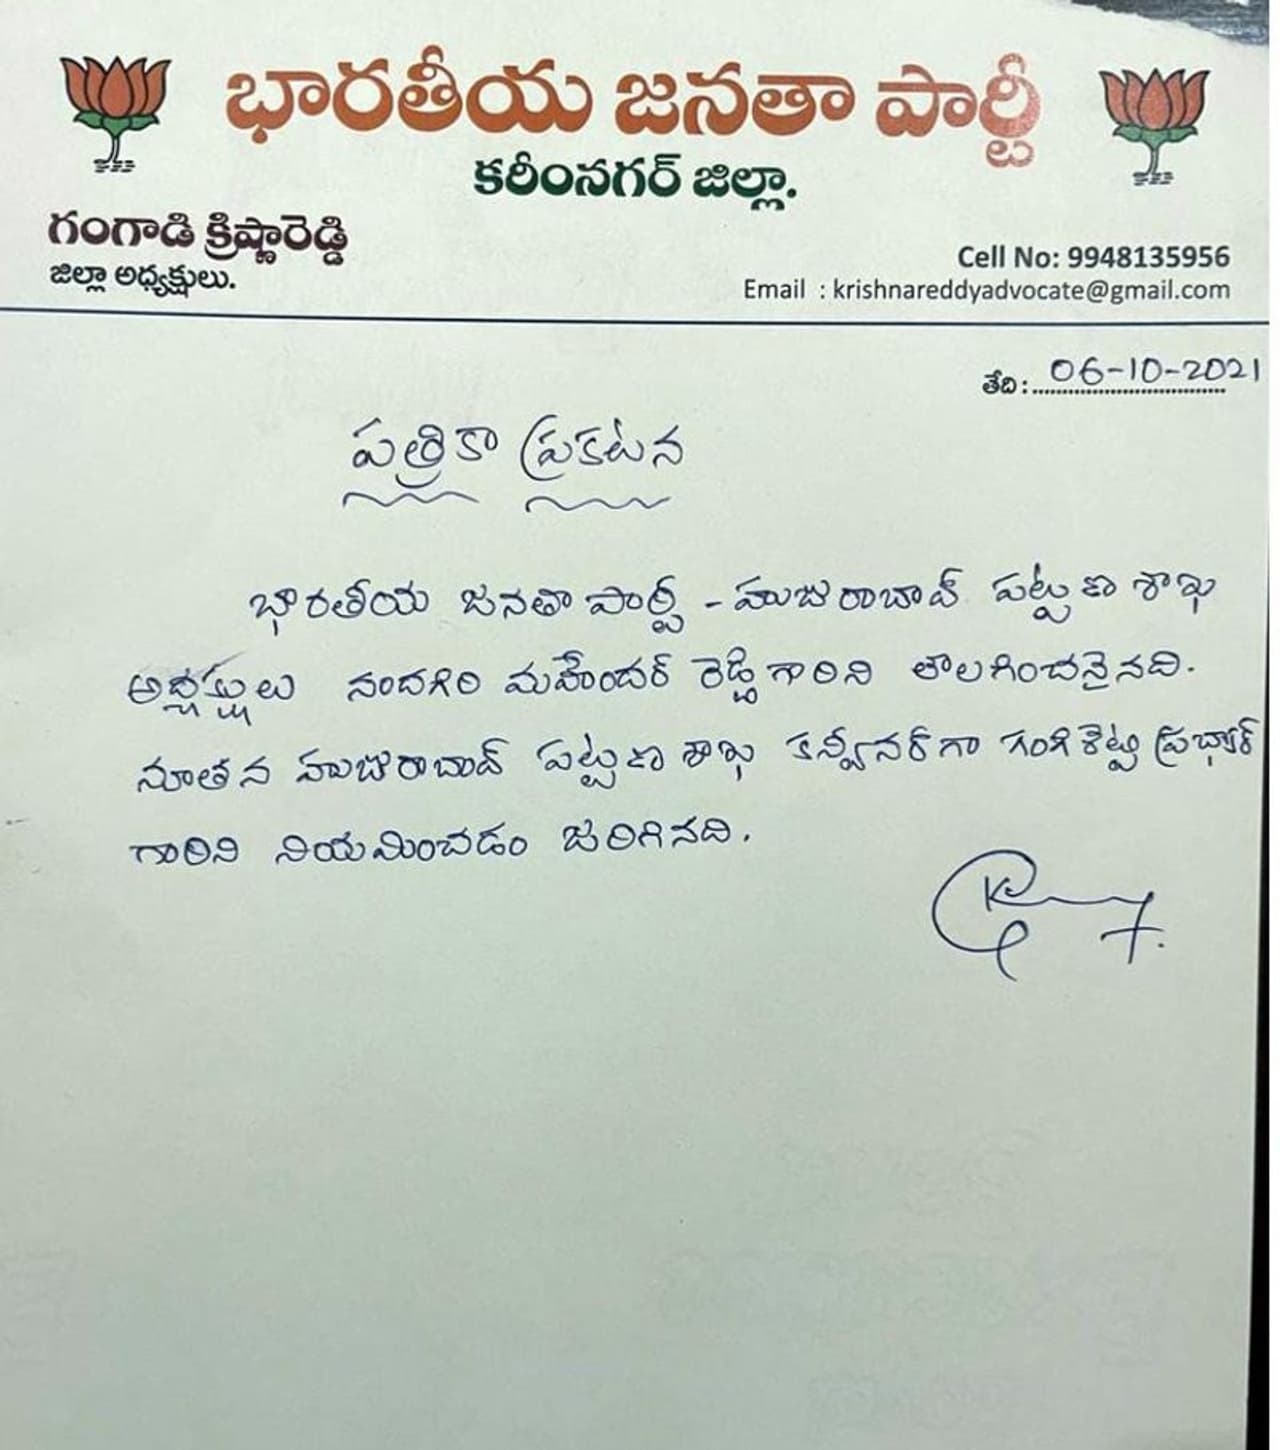 భారతీయ జనతా పార్టీ
కరీంనగర్ జిల్లా.
గంగాడి క్రిష్ణారెడ్డి
జిల్లా అధ్యక్షులు.
Cell No: 9948135956
Email : krishnareddyadvocate@gmail.com
తేది: 06-10-2021
పత్రికా ప్రకటన
భారతీయ జనతా పార్టీ - హుజురాబాద్ పట్టణ శాఖ
అధ్యక్షులు నందగిరి మహేందర్ రెడ్డి గారిని తొలగించనైనది.
నూతన హుజురాబాద్ పట్టణ శాఖ కన్వీనర్‌గా గంగిశెట్టి ప్రభాకర్
గారిని నియమించడం జరిగినది.